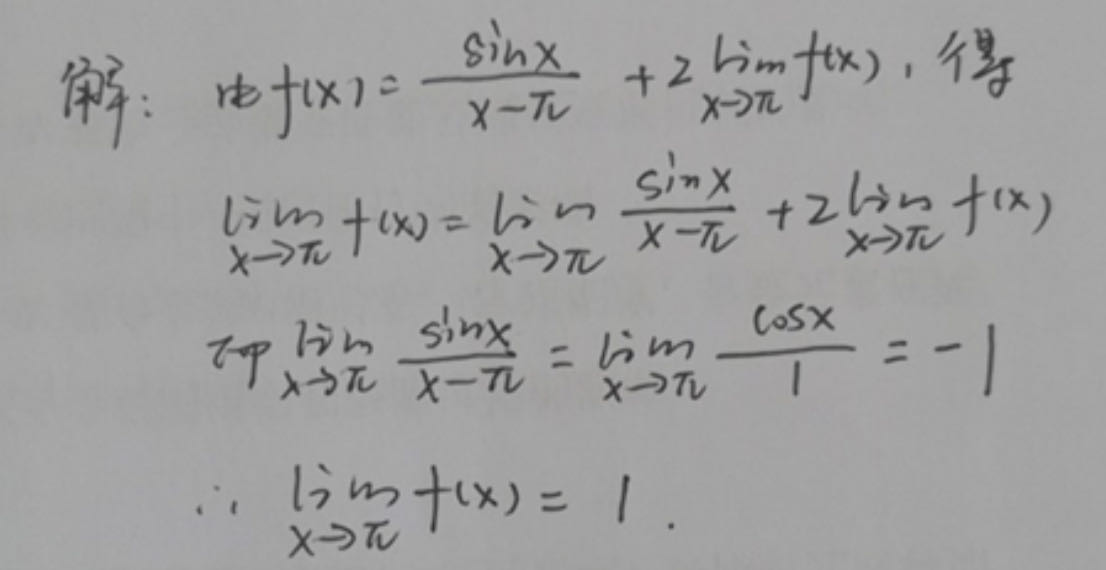 解: 由 f(x) = \frac{sinx}{x-π} + 2 \lim_{x→π} f(x), 得
\lim_{x→π} f(x) = \lim_{x→π} \frac{sinx}{x-π} + 2 \lim_{x→π} f(x)
而 \lim_{x→π} \frac{sinx}{x-π} = \lim_{x→π} \frac{cosx}{1} = -1
∴ \lim_{x→π} f(x) = 1.